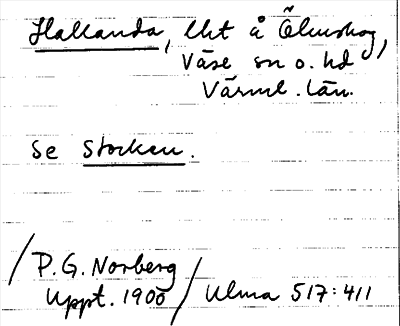 Hallanda, lht å Ölmskog,
Väse sn o. hd
Värml. län.
Se Stocken.
/P.G. Norberg
Uppt. 1900/ Ulma 517:411